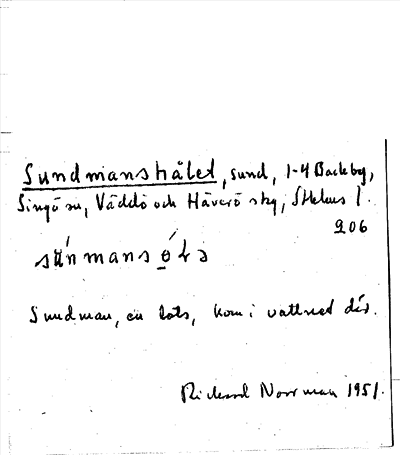 Sundmanshålet, sund, 1-4 Backby,
Singö sn, Väddö och Häverö skg, Sthlms l.
206
sún mans ó̲lə
Sundman, en lots, kom i vattnet där.
Rickard Norrman 1951.